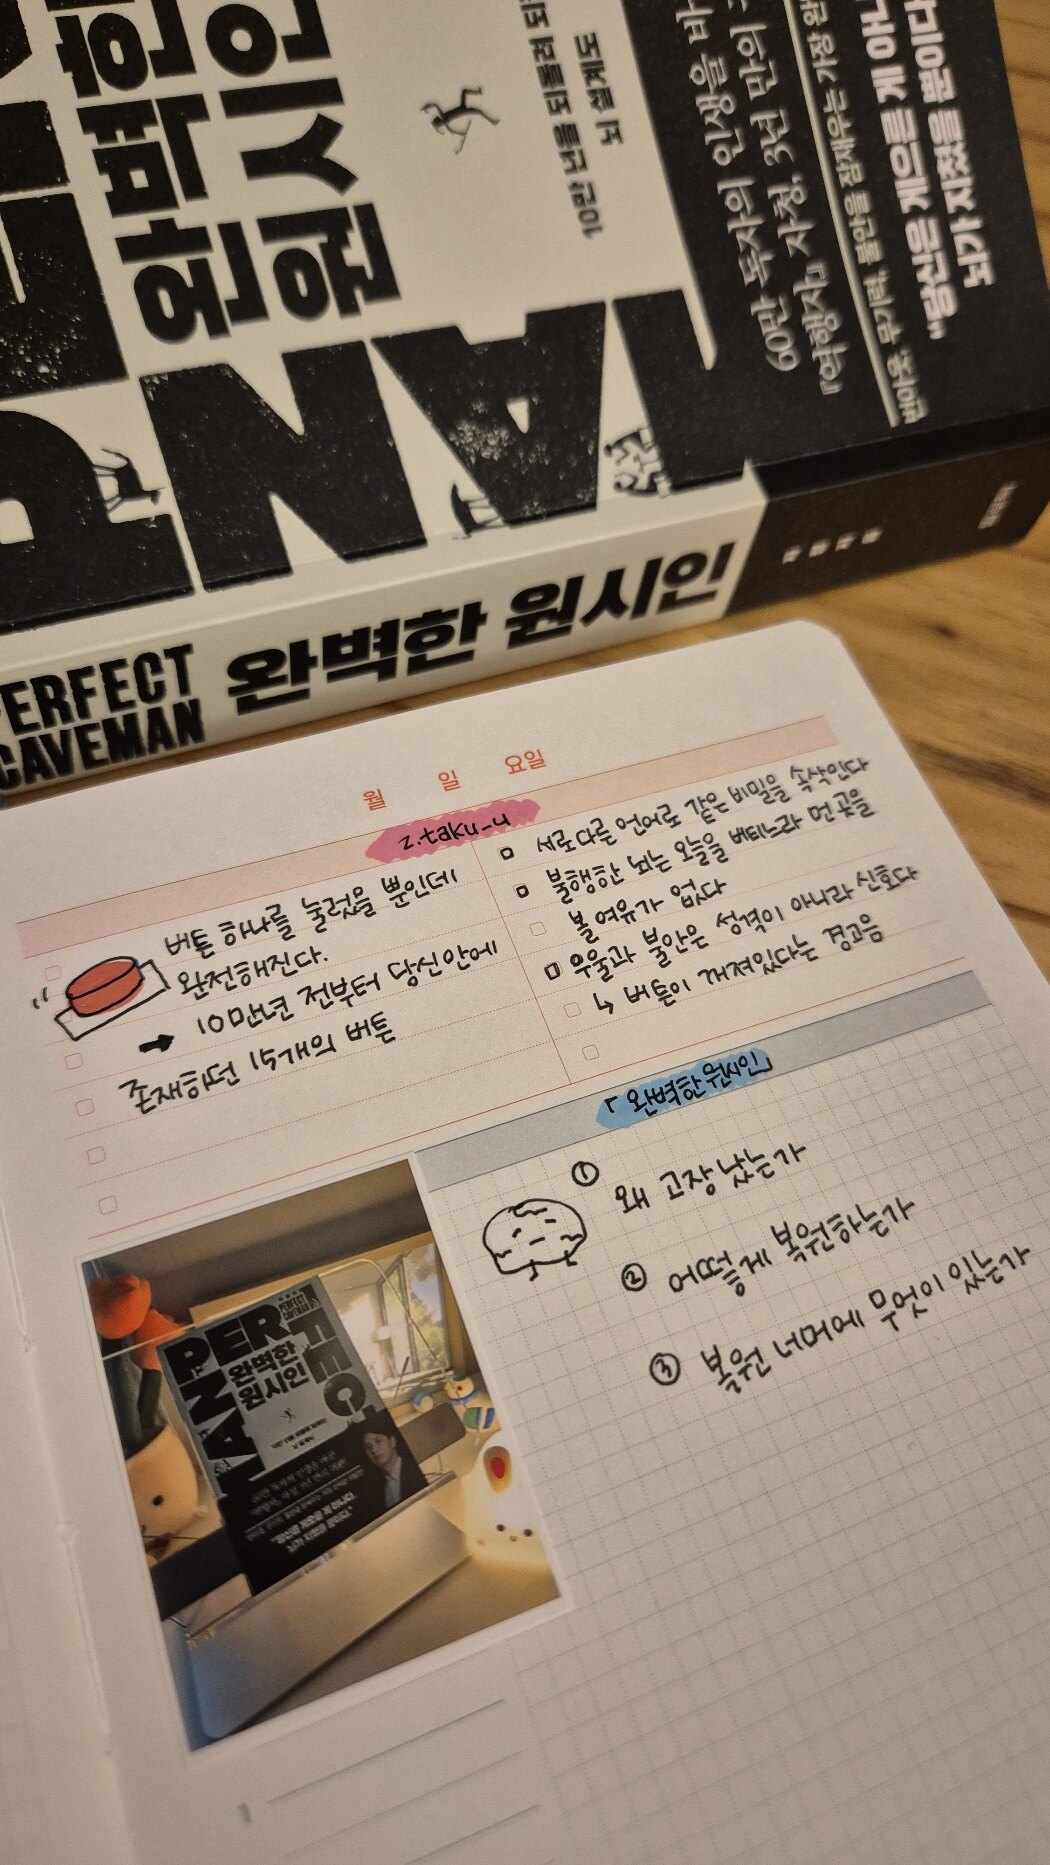 완벽한
원시인
10만 년을 되돌려
뇌 설계도
60만 독자의 인생을
『역행자』 자청, 3년 만의
번아웃, 무기력, 불안을 잠재우는 가장
"당신은 게으른 게 아니
뇌가 지쳤을 뿐이다
PERFECT
CAVEMAN
완벽한 원시인
월 일 요일
z.taku-u
버튼 하나를 눌렀을 뿐인데
완전해진다.
→ 10만년 전부터 당신안에
존재하던 15개의 버튼
서로다른 언어로 같은 비밀을 속삭인다
불행한 뇌는 오늘을 버티느라 먼 곳을
볼 여유가 없다
우울과 불안은 성격이 아니라 신호다
↳ 버튼이 꺼져있다는 경고음
「완벽한 원시인」
① 왜 고장 났는가
② 어떻게 복원하는가
③ 복원 너머에 무엇이 있는가
PERFECT
CAVEMAN
완벽한
원시인